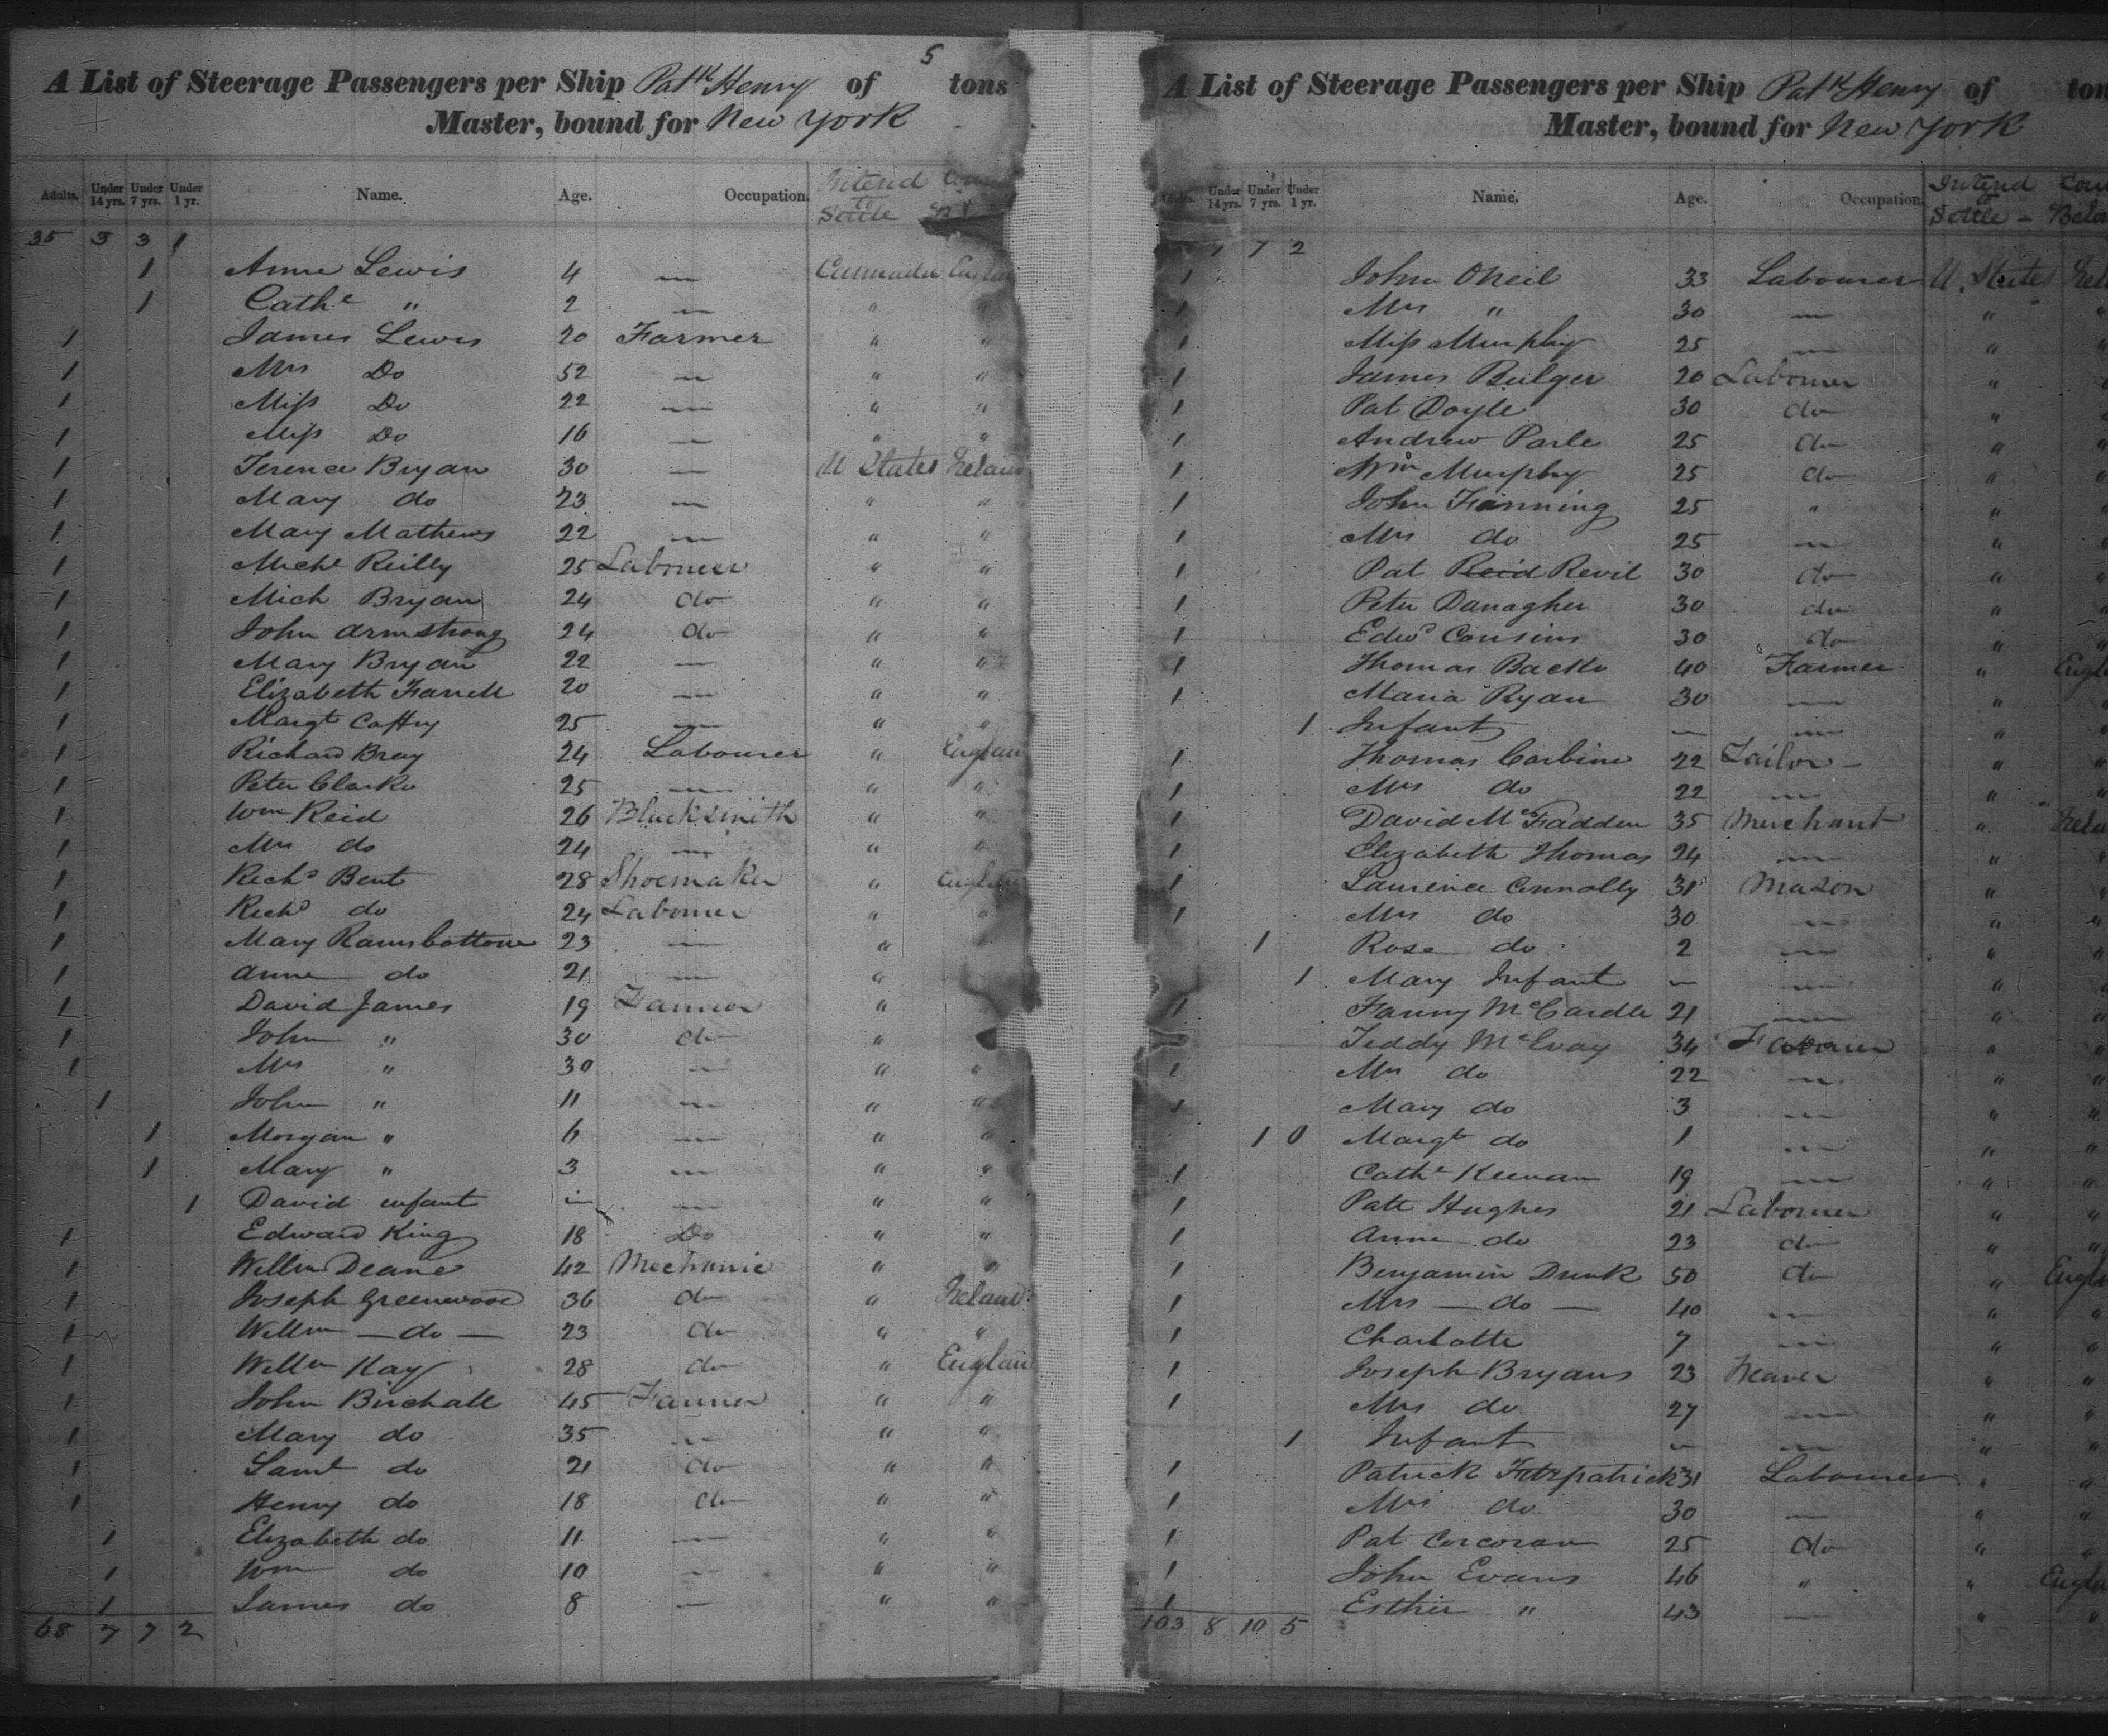 5
A List of Steerage Passengers per Ship Patk Henry of tons
Master, bound for New York
Adults. Under 14 yrs. Under 7 yrs. Under 1 yr. Name. Age. Occupation. Intend to Settle
35 3 3 1
1 Anne Lewis 4 —
1 Cathe " 2 — " "
1 James Lewis 20 Farmer " "
1 Mrs Do 52 — " "
1 Miss Do 22 — " "
1 Miss Do 16 — " "
1 Terence Bryan 30 — U States Ireland
1 Mary do 23 — " "
1 Mary Mathews 22 — " "
1 Michl Reilly 25 Labourer " "
1 Mich Bryan 24 do " "
1 John Armstrong 24 do " "
1 Mary Bryan 22 — " "
1 Elizabeth Farrell 20 — " "
1 Margt Caffry 25 — " "
1 Richard Bray 24 Labourer " Englan
1 Peter Clarke 25 — " "
1 Wm Reid 26 Blacksmith " "
1 Mrs do 24 — " "
1 Richd Bent 28 Shoemaker "
1 Richd do 24 Labourer " "
1 Mary Ramsbottom 23 — "
1 Anne do 21 — "
1 David James 19 Farmer "
1 John " 30 do "
1 Mrs " 30 — " "
1 John " 11 — " "
1 Morgan " 6 — " "
1 Mary " 3 — " "
1 David infant — — " "
1 Edward King 18 Do " "
1 Willm Deane 42 Mechanic " "
1 Joseph Greenwood 36 do " Ireland
1 Willm — do — 23 do " "
1 Willm Kay 28 do " Englan
1 John Birchall 45 Farmer " "
1 Mary do 35 — " "
1 Saml do 21 do " "
1 Henry do 18 do " "
1 Elizabeth do 11 — " "
1 Wm do 10 — " "
1 James do 8 — " "
68 7 7 2
A List of Steerage Passengers per Ship Patk Henry of ton
Master, bound for New York
Adults. Under 14 yrs. Under 7 yrs. Under 1 yr. Name. Age. Occupation. Intend to Settle —
7 7 2
1 John ONeil 33 Labourer U. States Irel
1 Mrs " 30 — " "
1 Miss Murphy 25 — " "
1 James Bulger 20 Labourer " "
1 Pat Doyle 30 do " "
1 Andrew Parle 25 do " "
1 Wm Murphy 25 do " "
1 John Fanning 25 " " "
1 Mrs do 25 — " "
1 Pat Reid Revil 30 do " "
1 Peter Danagher 30 do " "
1 Edwd Cousins 30 do " "
1 Thomas 40 Farmer " Engla
1 Maria Ryan 30 — " "
1 Infant — — " "
1 Thomas Carbine 22 Tailor — " "
1 Mrs do 22 — " "
1 David McFadden 35 Merchant " Irela
1 Elizabeth Thomas 24 — " "
1 Laurence Connolly 31 Mason " "
1 Mrs do 30 — " "
1 Rose do 2 — " "
1 Mary Infant — — " "
1 Fanny McCardle 21 — " "
Teddy McEvoy 34 " "
1 Mrs do 22 — " "
1 Mary do 3 — " "
1 0 Margt do 1 — " "
1 Cathe Keenan 19 — " "
1 Patt Hughes 21 Labourer " "
1 Anne do 23 do " "
1 Benjamin Drunk 50 do " Engla
1 Mrs — do — 40 — " "
1 Charlotte 7 — " "
1 Joseph Bryans 23 Weaver " "
1 Mrs do 27 — " "
1 Infant — — " "
1 Patrick Fitzpatrick 31 Labourer " "
1 Mrs do 30 — " "
1 Pat Corcoran 25 do " "
1 John Evans 46 " " Engla
1 Esther " 43 — " "
103 8 10 5